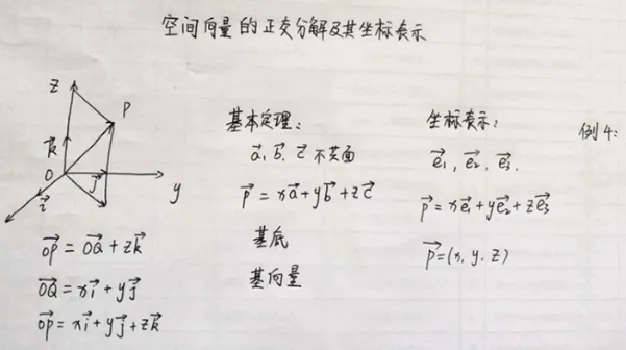 空间向量的正交分解及其坐标表示
z
P
k⃗
O
j⃗
y
i⃗
OP⃗ = OQ⃗ + zk⃗
OQ⃗ = xi⃗ + yj⃗
OP⃗ = xi⃗ + yj⃗ + zk⃗
基本定理:
a⃗, b⃗, c⃗ 不共面
p⃗ = xa⃗ + yb⃗ + zc⃗
基底
基向量
坐标表示:
e₁⃗, e₂⃗, e₃⃗.
p⃗ = xe₁⃗ + ye₂⃗ + ze₃⃗
p⃗ = (x, y, z)
例4: